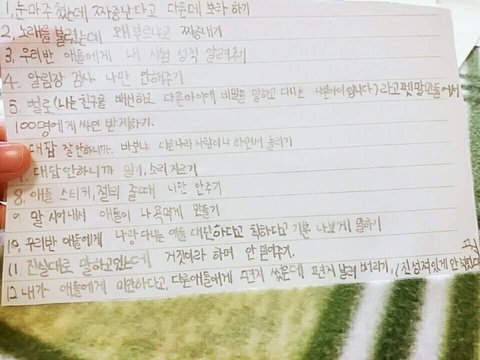 1. 눈마주쳤는데 짜증난다고 다른데 보라 하기
2. 노래를 불렀는데 왜부르냐고 짜증내기
3. 우리반 애들에게 내 시험 성적 알려주기
4. 알림장 검사 나만 안해주기
5 벌로 (나는 친구를 배신하고 다른아이에 비밀을 말하고 다니는 나쁜아이입니다) 라고
100명에게 싸인 받게하기.
6. 대답 잘 안하니까. 바보냐 다른나라 사람이냐 하면서 놀리기
7. 대답안하니까 밀기, 소리 지르기
8. 애들 스티커, 젤리 줄때 나만 안주기
9 말 지어내서 애들이 나 욕먹게 만들기
10. 우리반 애들에게 나랑 다니는 애들 대단하다고 착하다고 기분 나쁘게 말하기
11. 진실대로 말하고있는데 거짓이라 하며 안 믿어주기.
12 내가 애들에게 미안하다고, 다른애들에게 편지 썼는데 편지 찢어 버리기, (진정성있게 안